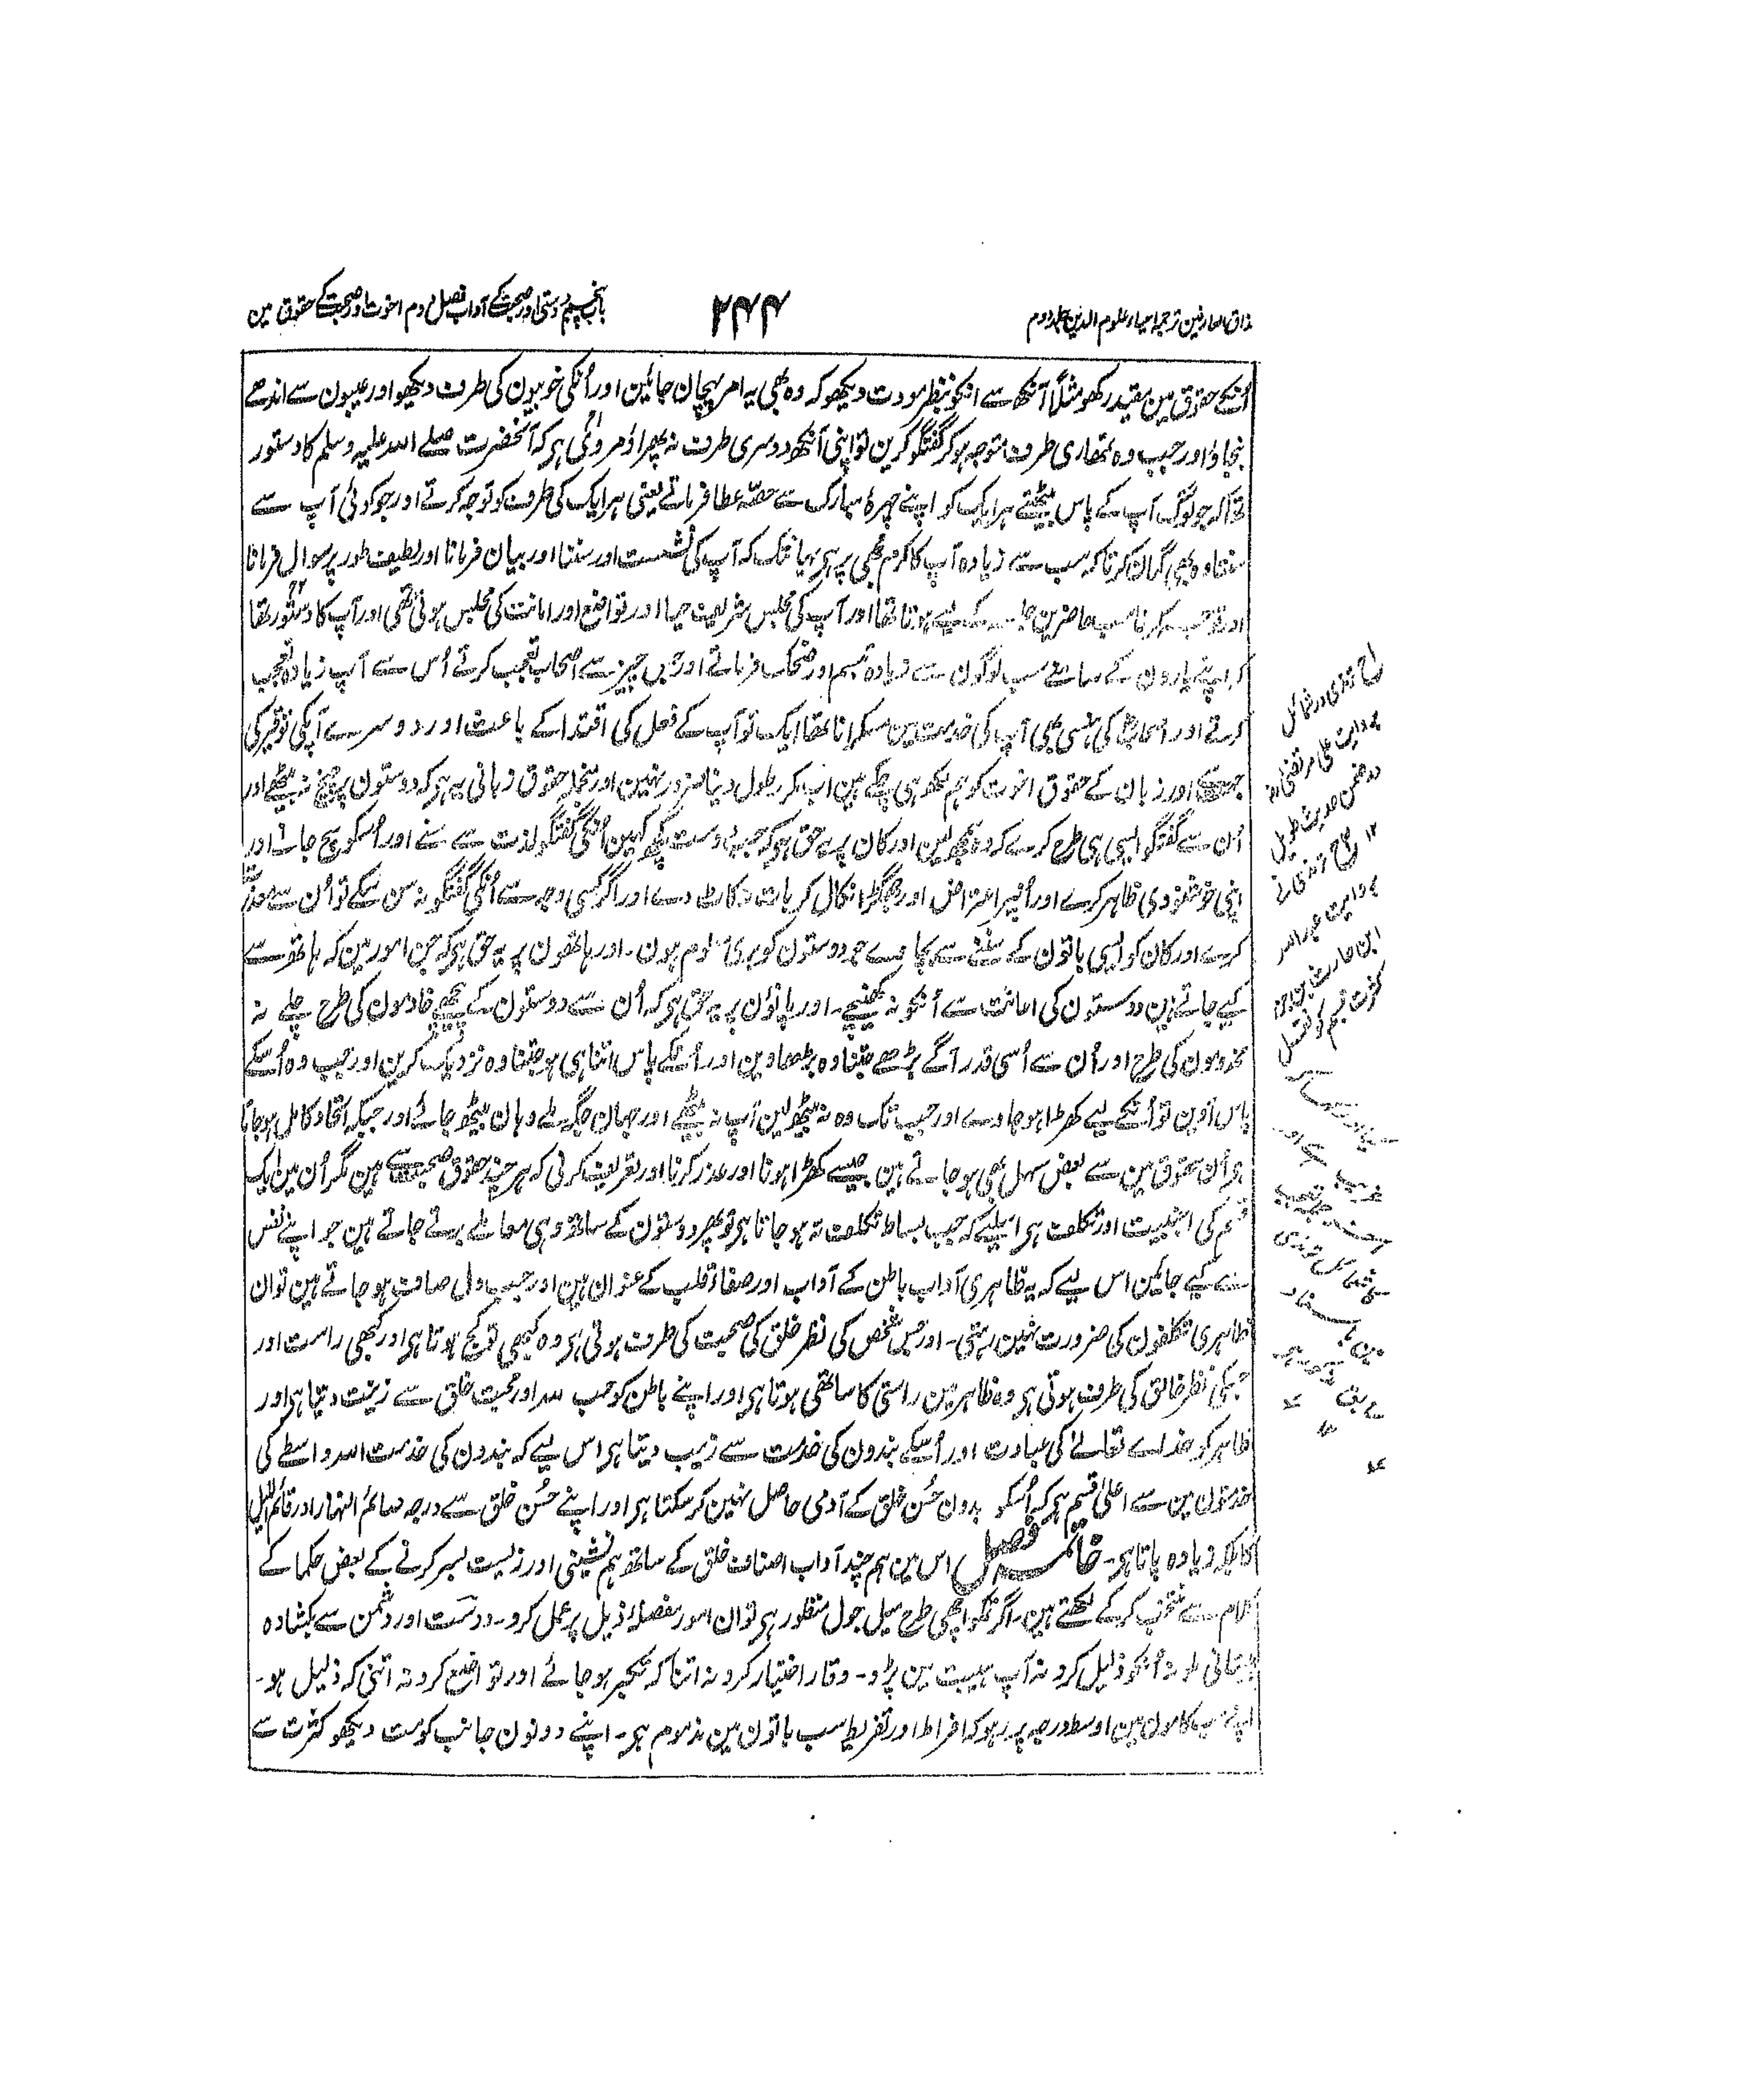 مذاق العارفین ترجمہ احیاء علوم الدین جلد دوم
۲۴۴
باب پنجم دوستی اور صحبت کے آداب فصل دوم اخوت اور صحبت کے حقوق مین
اُنکے حقوق مین مقید رکھو مثلًا آنکھ سے انکو بنظر مودت دیکھو کہ وہ بھی یہ امر پہچان جائین اور اُنکی خوبیون کی طرف دیکھو اور عیبون سے اندھے
بنجاؤ اور جب وہ تمھاری طرف متوجہ ہو کر گفتگو کرین تو اپنی آنکھ دوسری طرف نہ پھراؤ مروی ہر کہ آنحضرت صلے اللہ علیہ وسلم کا دستور
تھا کہ جو لوگ آپ کے پاس بیٹھتے ہر ایک کو اپنے چہرۂ مبارک سے حصّہ عطا فرماتے یعنی ہر ایک کی طرف کو توجہ کرتے اور جو کوئی آپ سے
سنتا وہ یہی گمان کرتا کہ سب سے زیادہ آپ کا کرم مجھی پر ہر یہانتک کہ آپ کی نشست اور سننا اور بیان فرمانا اور لطیف طور پر سوال فرمانا
اور توجہ کرنا سب حاضرین کے لیے ہوتا تھا اور آپ کی مجلس شریف حیا اور تواضع اور امانت کی مجلس ہوتی تھی اور آپ کا دستور تھا
کہ اپنے یارون کے سامنے سب لوگون سے زیادہ تبسم اور ضحک فرماتے اور جس چیز سے اصحاب تعجب کرتے اُس سے آپ زیادہ تعجب
کرتے اور اصحاب کی ہنسی بھی آپ کی خدمت مین مسکرانا تھا ایک تو آپ کے فعل کی اقتدا کے باعث اور دوسرے آپکی توقیر کی
جہت سے اور زبان کے حقوق اخوت کو ہم لکھ ہی چکے ہین اب مکرر طول دینا ضرور نہین اور منجملہ حقوق زبانی یہ ہر کہ دوستون پر چیخ نہ بیٹھے اور
اُن سے گفتگو ایسی ہی طرح کرے کہ وہ سمجھ لین اور کان پر یہ حق ہر کہ جب دوست کچھ کہین اُنکی گفتگو لذت سے سنے اور اُسکو سچ جانے اور
اپنی خوشنودی ظاہر کرے اور اُنپر اعتراض اور جھگڑا نکال کر بات نہ کاٹ دے اور اگر کسی وجہ سے اُنکی گفتگو نہ سن سکے تو اُن سے عذر
کرے اور کان کو ایسی باتون کے سننے سے بچاوے جو دوستون کو بری معلوم ہون۔ اور ہاتھون پر یہ حق ہر کہ جن امور مین کہ ہاتھ سے
کیے جاتے ہین دوستون کی اعانت سے اُنکو نہ کھینچے۔ اور پاؤن پر یہ حق ہر کہ اُن سے دوستون کے پیچھے خادمون کی طرح چلے نہ
مخدومون کی طرح اور اُن سے اُسی قدر آگے بڑھے جتنا وہ بڑھاوین اور اُنکے پاس اتنا ہی ہو جتنا وہ نزدیک کرین اور جب وہ اُسکے
پاس آوین تو اُنکے لیے کھڑا ہو جاوے اور جب تک وہ نہ بیٹھ لین آپ نہ بیٹھے اور جہان جگہ ملے وہان بیٹھ جائے اور جبکہ اتحاد کامل ہو جاتا
ہر اُن حقوق مین سے بعض سہل بھی ہو جاتے ہین جیسے کھڑا ہونا اور عذر کرنا اور تعریف کرنی کہ ہر چند حقوق صحبت سے ہین مگر اُن مین ایک
قسم کی اجنبیت اور تکلف ہر اسلیے کہ جب بساط تکلف تہ ہو جاتا ہر تو پھر دوستون کے ساتھ وہی معاملے برتے جاتے ہین جو اپنے نفس
سے کیے جائین اس لیے کہ یہ ظاہری آداب باطن کے آداب اور صفائے قلب کے عنوان ہین اور جب دل صاف ہو جاتے ہین تو ان
ظاہری تکلفون کی ضرورت نہین رہتی۔ اور جس شخص کی نظر خلق کی صحبت کی طرف ہوتی ہر وہ کبھی تو کج ہوتا ہر اور کبھی راست اور
جسکی نظر خالق کی طرف ہوتی ہر وہ ظاہر مین راستی کا ساتھی ہوتا ہر اور اپنے باطن کو حب للہ اور محبت خلق سے زینت دیتا ہر اور
ظاہر کو خداے تعالےٰ کی عبادت اور اُسکے بندون کی خدمت سے زیب دیتا ہر اس لیے کہ بندون کی خدمت اللہ واسطے کی
خدمتون مین سے اعلیٰ قسم ہر کہ اُسکو بدون حُسن خلق کے آدمی حاصل نہین کر سکتا ہر اور اپنے حُسن خلق سے درجہ صائم النہار اور قائم اللیل
کا بلکہ زیادہ پاتا ہر۔ خاتمہ فصل اس مین ہم چند آداب اصناف خلق کے ساتھ ہم نشینی اور زیست بسر کرنے کے بعض حکما کے
کلام سے منتخب کر کے لکھتے ہین۔ اگر تمکو اچھی طرح میل جول منظور ہر تو ان امور مفصلۂ ذیل پر عمل کرو۔ دوست اور دشمن سے بکشادہ
پیشانی ملو نہ اُنکو ذلیل کرو نہ آپ ہیبت مین پڑو۔ وقار اختیار کرو نہ اتنا کہ تکبر ہو جائے اور تواضع کرو نہ اتنی کہ ذلیل ہو۔
اپنے سب کامون مین اوسط درجہ پر رہو کہ افراط اور تفریط سب باتون مین مذموم ہر۔ اپنے دونون جانب کو مت دیکھو کثرت سے
ترمذی در شمائل
بروایت علی مرتضیٰ
در ضمن حدیث طویل
۱۲ ترمذی نے
بروایت عبداللہ
ابن حارث بن جزء